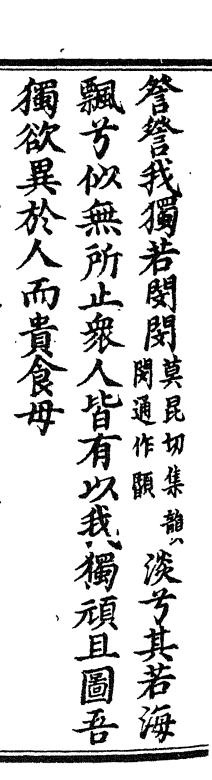 詧詧我獨若閔閔莫昆切集韻閔通作淡兮其若海
飄兮似無所止衆人皆有以我獨頑且圖吾
獨欲異於人而貴食母